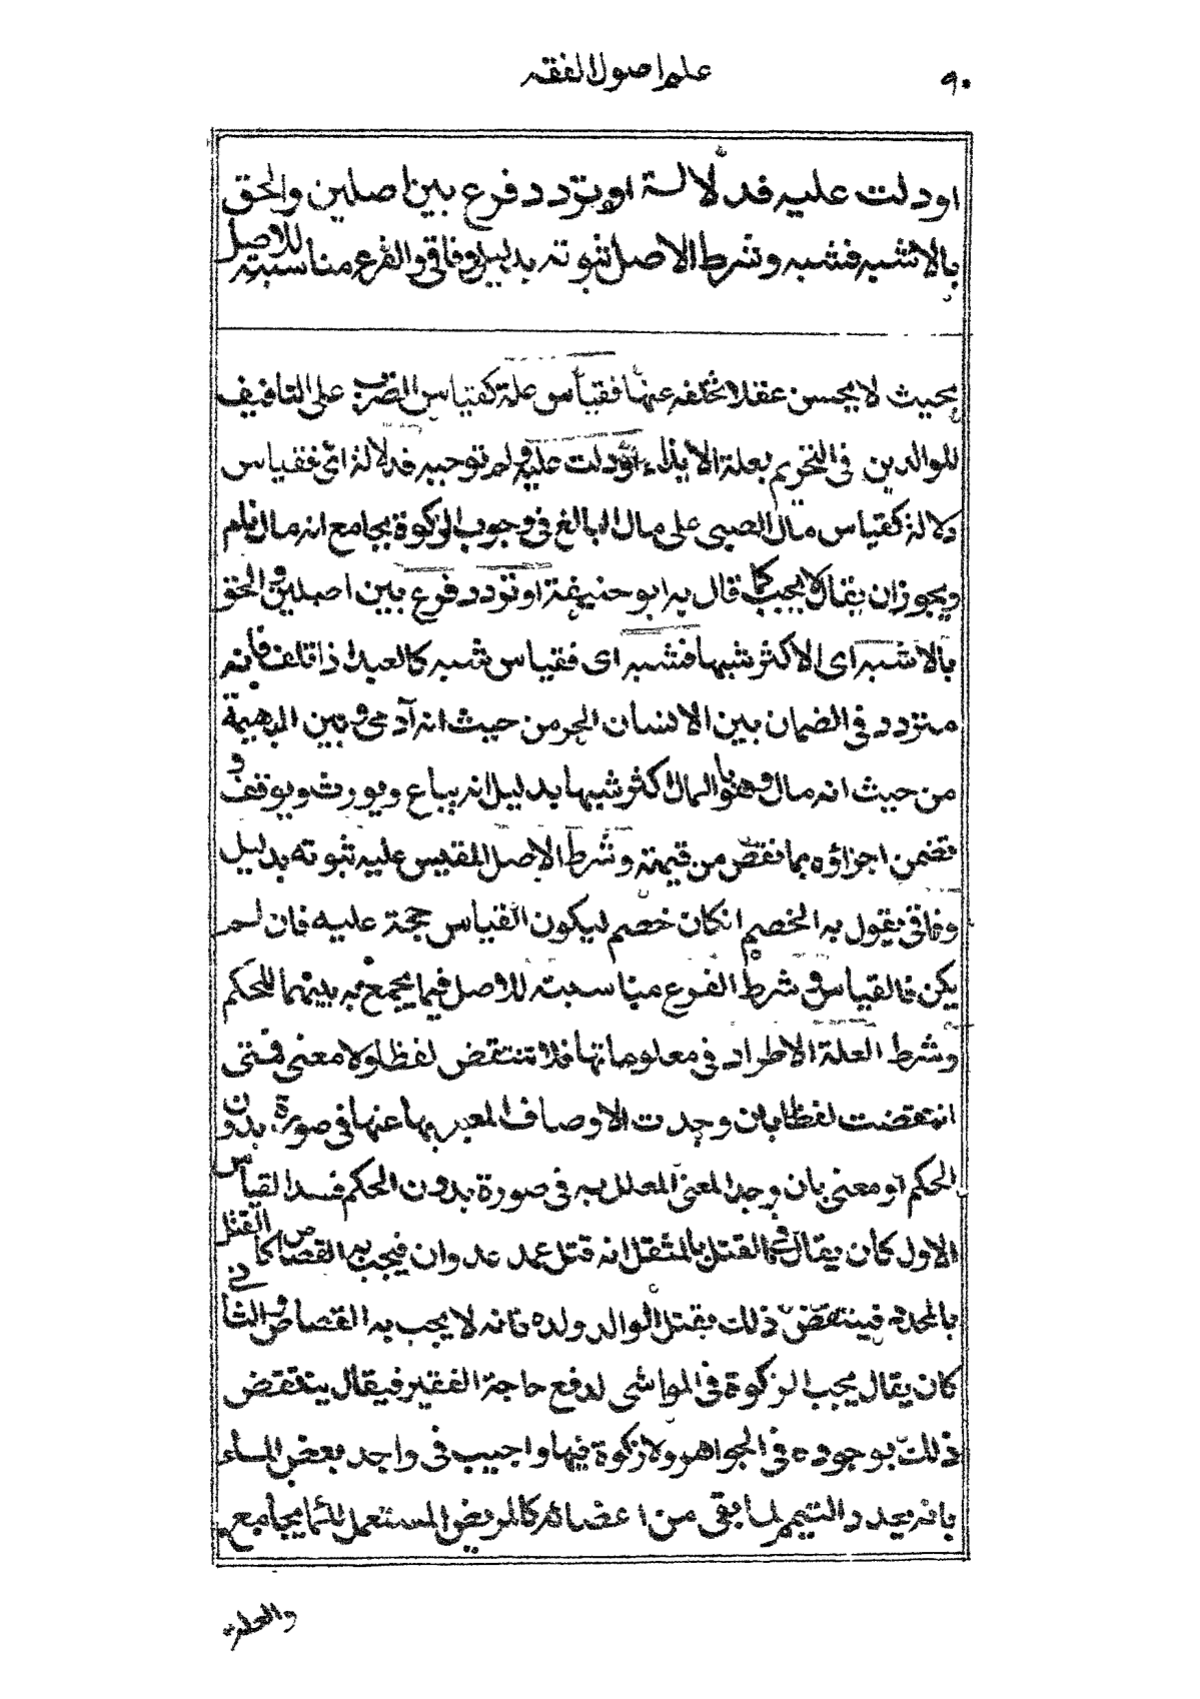 ٩٠
علم اصول الفقه
او دلت عليه فدلالة او تردد فرع بين اصلين والحق
بالاشبه فشبه وشرط الاصل ثبوته بدليل وفاقي والفرع مناسبته للاصل
بحيث لا يحسن عقلا تخلفه عنها فقياس علة كقياس الضرب على التافيف
للوالدين في التحريم بعلة الايذاء او دلت عليه ولم توجبه فدلالة اى فقياس
دلالة كقياس مال الصبى على مال البالغ في وجوب الزكوة بجامع انه مال نام
ويجوز ان يقال لا يجب كما قال به ابو حنيفة او تردد فرع بين اصلين والحق
بالاشبه اى الاكثر شبها فشبه اى فقياس شبه كالعبد اذا تلف فانه
متردد في الضمان بين الانسان الحر من حيث انه آدمى وبين البهيمة
من حيث انه مال وهو بالمال اكثر شبها بدليل انه يباع ويورث ويوقف و
تضمن اجزاؤه بما نقص من قيمته وشرط الاصل المقيس عليه ثبوته بدليل
وفاقي يقول به الخصم ان كان خصم ليكون القياس حجة عليه فان لم
يكن فالقياس وشرط الفرع مناسبته للاصل فيما يجمع به بينهما للحكم
وشرط العلة الاطراد في معلوماتها فلا تنتقض لفظا ولا معنى فمتى
انتقضت لفظا بان وجدت الاوصاف المعبر بها عنها في صورة بدون
الحكم او معنى بان وجد المعنى المعلل به في صورة بدون الحكم فسد القياس
الاول كان يقال في القتل بالمثقل انه قتل عمد عدوان فيجب به القصاص كالقتل
بالمحدد فينتقض ذلك بقتل الوالد ولده فانه لا يجب به القصاص والثاني
كان يقال يجب الزكوة في المواشى لدفع حاجة الفقير فيقال ينتقض
ذلك بوجوده في الجواهر ولا زكوة فيها واجيب في واجد بعض الماء
بانه يجدد التيمم لما بقى من اعضائه كالمريض المستعمل للماء بجامع